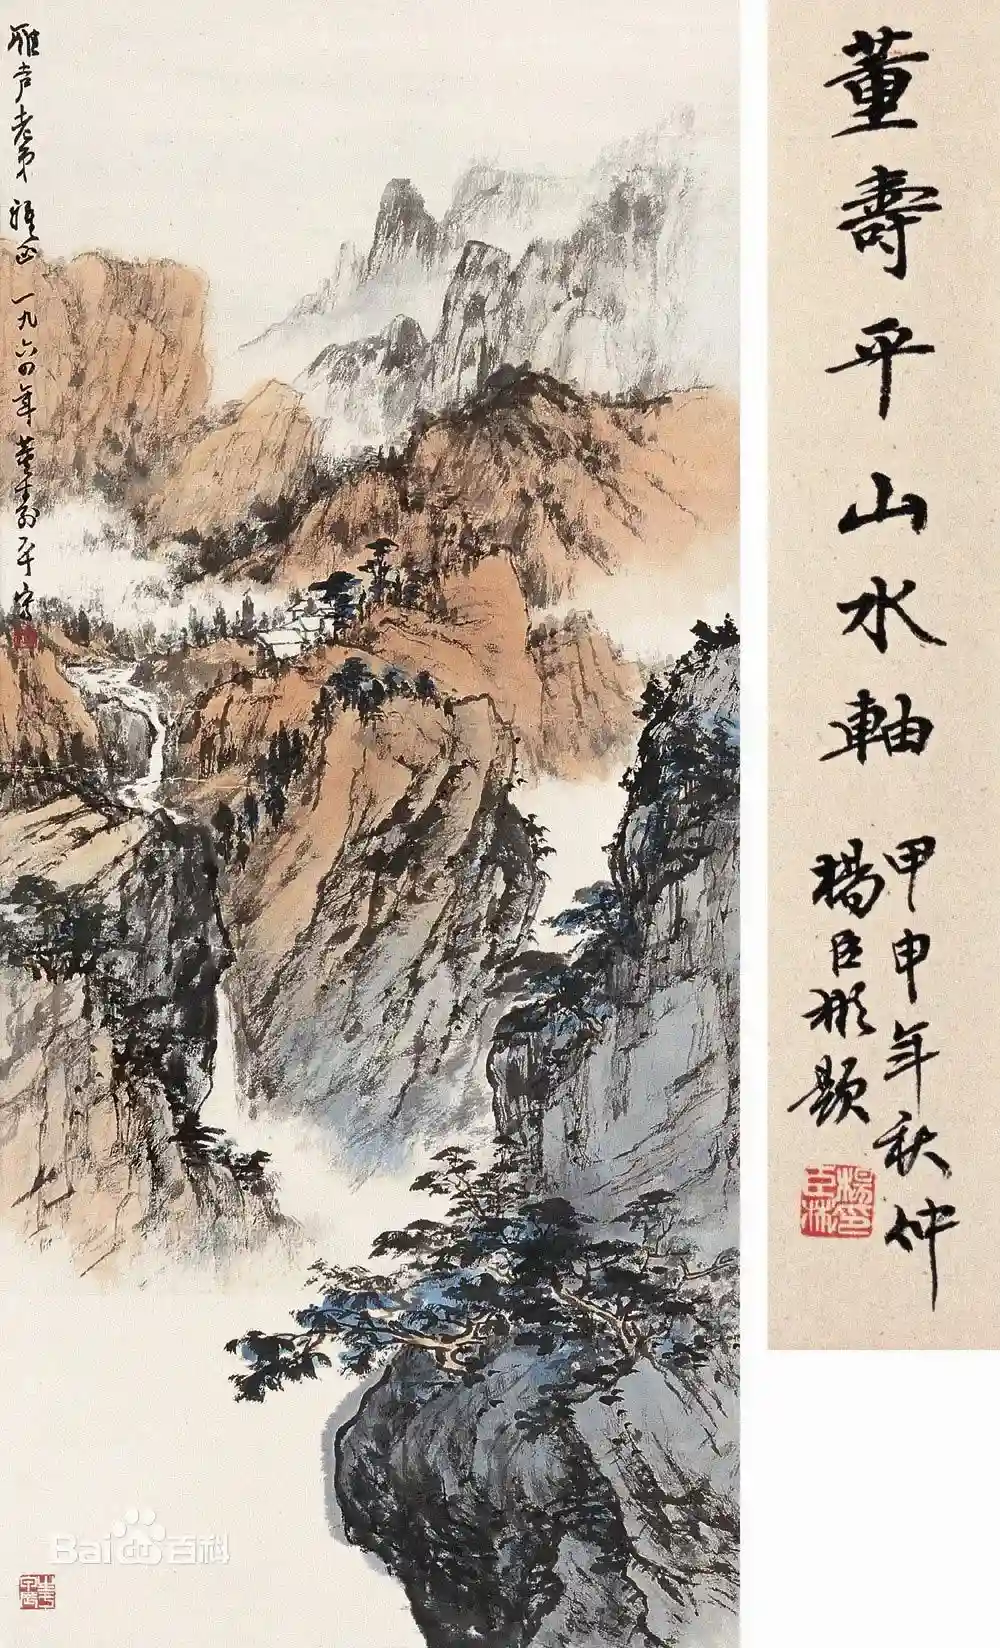 董壽平山水軸
甲申年秋仲
楊臣彬題
雅声老弟雅正 一九六四年 董寿平写
Bai 百科